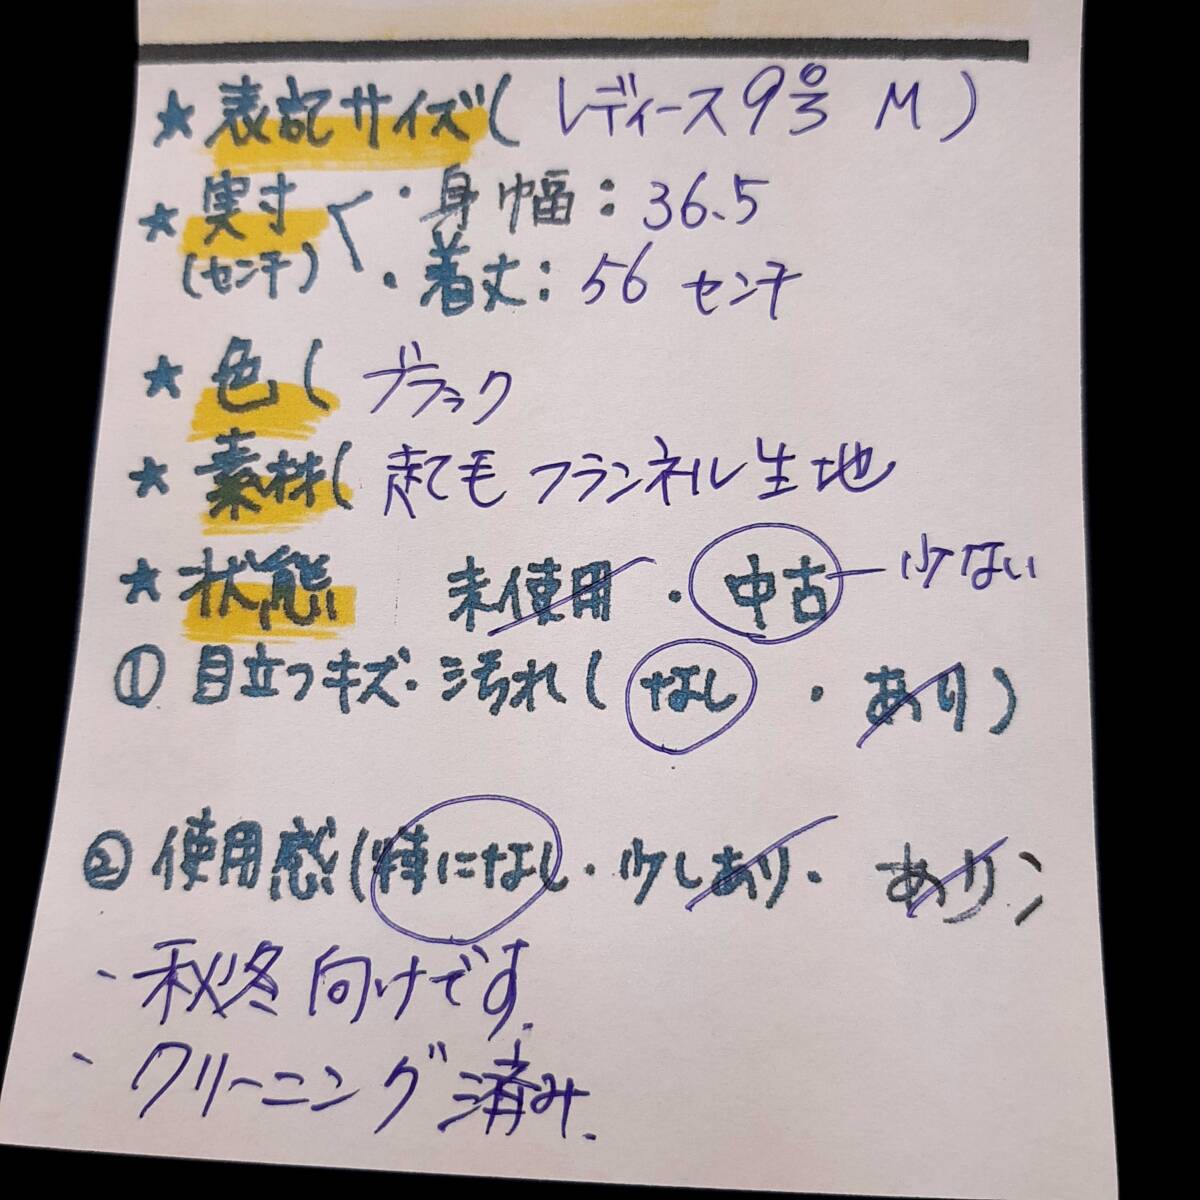 ★ 表記サイズ( レディース9号 M )
★ 実寸 ・身幅：36.5
(センチ) ・着丈：56 センチ
★ 色( ブラック
★ 素材( 起毛 フランネル生地
★ 状態 未使用 ・ 中古 ー 少ない
① 目立つキズ・汚れ( なし ・ あり )
② 使用感(特になし・少しあり・ あり)
・秋冬向けです.
・クリーニング済み.